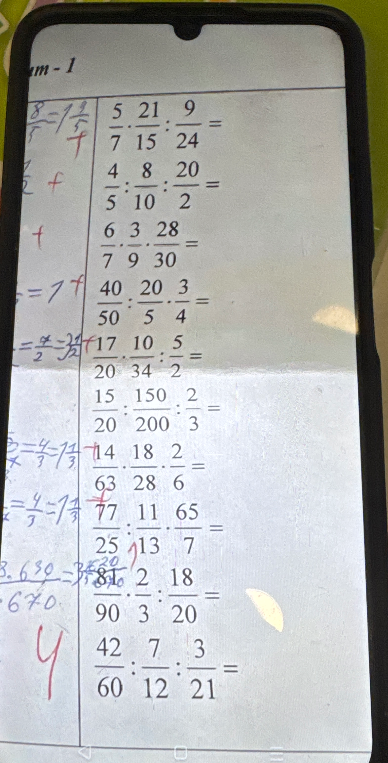 m - 1
8/5 = 1 3/5 + 5/7 · 21/15 : 9/24 =
+ 4/5 : 8/10 : 20/2 =
+ 6/7 · 3/9 · 28/30 =
= 1 + 40/50 : 20/5 · 3/4 =
+ 17/20 · 10/34 : 5/2 =
15/20 : 150/200 : 2/3 =
= 4/3 = 1 1/3 + 14/63 · 18/28 · 2/6 =
= 4/3 = 1 1/3 + 77/25 : 11/13 · 65/7 =
81/90 · 2/3 : 18/20 =
4 42/60 : 7/12 : 3/21 =